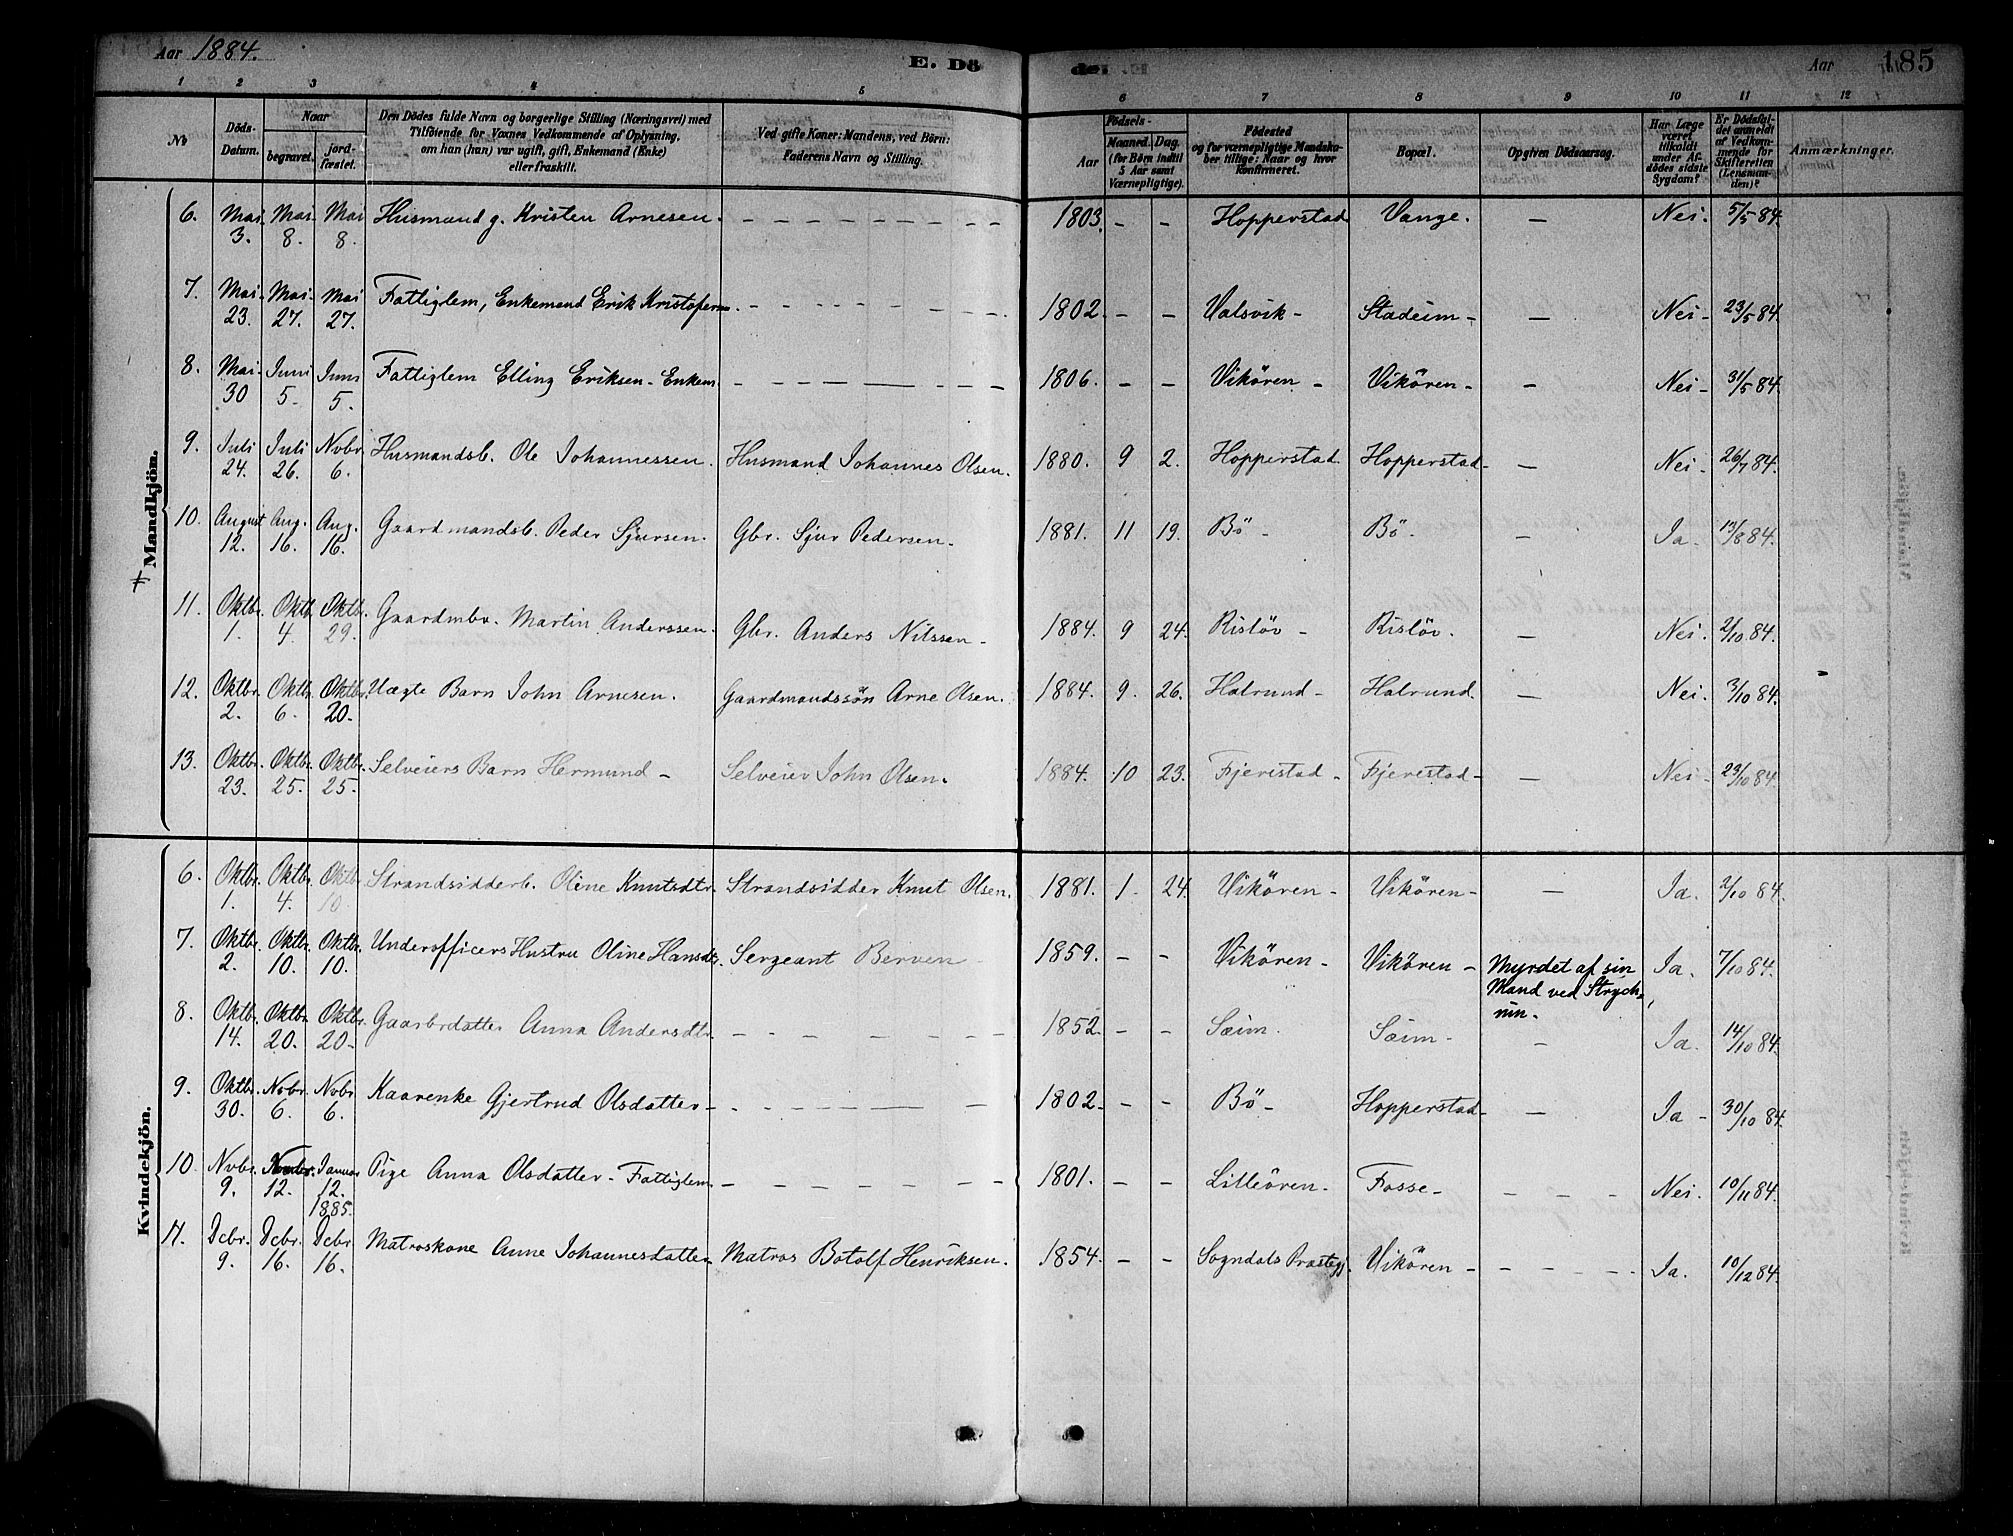 Aar 1884.
E. Dö
de.
Aar
185
1 2 3 4 5 6 7 8 9 10 11 12
No
Döds-Datum.
Naar
begravet.
jord-fæstet.
Den Dödes fulde Navn og borgerlige Stilling (Næringsvei) med
Tilföiende for Voxnes Vedkommende af Oplysning,
om han (hun) var ugift, gift, Enkemand (Enke)
eller fraskilt.
Ved gifte Koner: Mandens, ved Börn:
Faderens Navn og Stilling.
Födsels-
Aar
Maaned. Dag.
(for Börn indtil
5 Aar samt
Værnepligtige).
Födested
og for værnepligtige Mandska-
ber tillige: Naar og hvor
konfirmeret.
Bopæl.
Opgiven Dödsaarsag.
Har Læge
været
tilkaldt
under Af-
dödes sidste
Sygdom?
Er Dödsfal-
det anmeldt
af Vedkom-
mende for
Skifteretten
(Lensman-
den)?
Anmærkninger.
Mandkjön.
6. Mai 3. Mai 8. Mai 8. Husmand g. Kristen Arnesen. – 1803. – – Hopperstad Vange. – Nei. 5/5 84.
7. Mai 23. Mai 27. Mai 27. Fattiglem, Enkemand Erik Kristofersen. – 1802. – – Valsvik – Stadeim – – Nei – 23/5 84.
8. Mai 30 Juni 5. Juni 5. Fattiglem Elling Eriksen – Enkem. – 1806. – – Vikören – Vikören – – Nei – 31/5 84.
9. Juli 24. Juli 26. Novbr 6. Husmandsb. Ole Johannessen. Husmand Johannes Olsen. 1880. 9 2. Hopperstad Hopperstad – – Nei. 26/7 84.
10. August 12. Aug. 16. Aug. 16. Gaardmandsb. Peder Sjursen. Gbr. Sjur Pedersen. 1881. 11 19. Bö – Bö – – Ja. 13/8 84.
11. Oktbr. 1. Oktb 4. Oktbr. 29. Gaardmbr. Martin Anderssen. Gbr. Anders Nilssen – 1884. 9 24. Rislöv – Rislöv. – Nei. 2/10 84.
12. Oktbr. 2. Oktbr. 6. Oktbr. 20. Uægte Barn John Arnesen. Gaardmandssön Arne Olsen. 1884. 9. 26. Halrund – Halrund. – Nei. 3/10 84.
13. Oktbr. 23. Oktbr. 25. Oktbr. 25. Selveiers Barn Hermund – Selveier John Olsen. 1884. 10 23. Fjerestad – Fjerestad – – Nei – 23/10 84.
Kvindekjön.
6. Oktbr. 1. Oktbr. 4. Oktbr 10. Strandsidderb. Oline Knutsdtr. Strandsidder Knut Olsen. 1881. 1. 24. Vikören – Vikören – – Ja. 2/10 84.
7. Oktbr. 2. Oktbr. 10. Oktbr. 10. Underofficers Hustru Oline Hansdtr. Sergeant Berven – 1859. – – Vikören – Vikören – Myrdet af sin Mand ved Stryck-nin. Ja. 7/10 84.
8. Oktbr. 14. Oktbr. 20. Oktbr. 20. Gaarbrdatter Anna Andersdtr. – 1852. – – Sæim. Sæim – – Ja. 14/10 84.
9. Oktbr. 30. Novbr. 6. Novbr 6. Kaarenke Gjertrud Olsdatter – 1802. – – Bö – Hopperstad – – Ja – 30/10 84.
10. Novbr. 9. Novbr. 12. Januar 12. 1885. Pige Anna Olsdatter – Fattiglem. – 1801. – – Lilleören – Fosse – – Nei. 10/11 84.
11. Dcbr. 9. Dcbr. 16. Dcbr 16. Matroskone Anne Johannesdatter. Matros Botolf Henriksen. 1854. – – Sogndals Præstegj. Vikören – – Ja. 10/12 84.